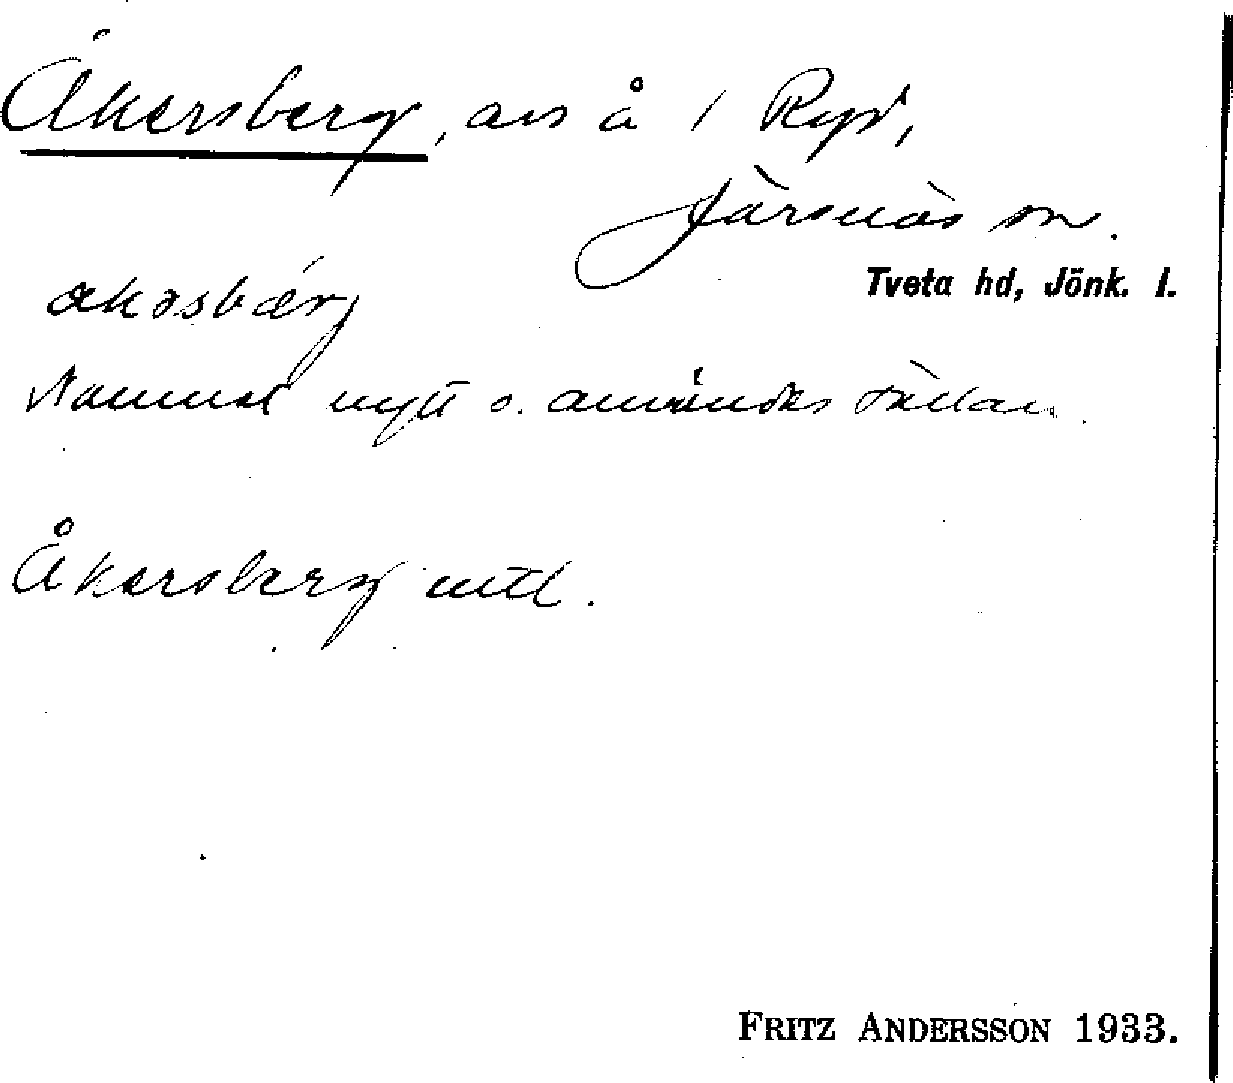 Åkersberg, avs å 1 Ryd,
Järsnäs sn.
Tveta hd, Jönk. l.
åkəsbærj
Namnet nytt o. användes sällan.
Åkersberg mtl.
FRITZ ANDERSSON 1933.